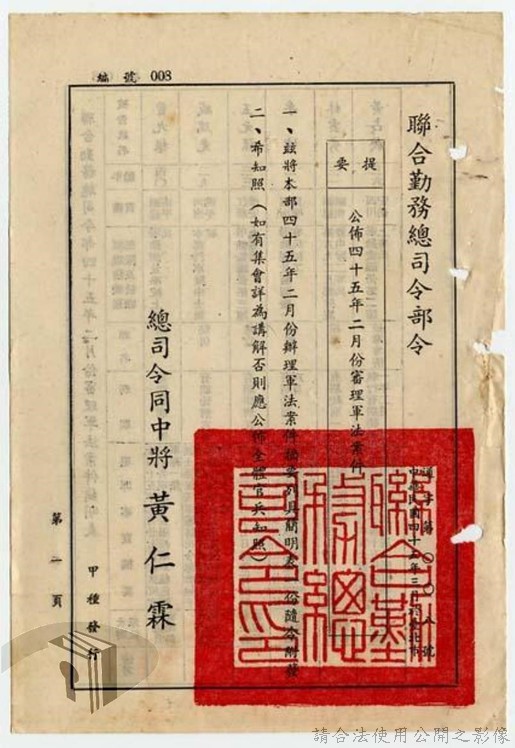 編號 008
聯合勤務總司令部令
中華民國四十五年三月 於臺北市
提要
公佈四十五年二月份審理軍法案件
一、茲將本部四十五年二月份辦理軍法案件摘要列具簡明表一份隨令附發
二、希知照（如有集會詳為講解否則應公佈全體官兵知照）
總司令同中將 黃仁霖
甲種發行
第一頁
請合法使用公開之影像